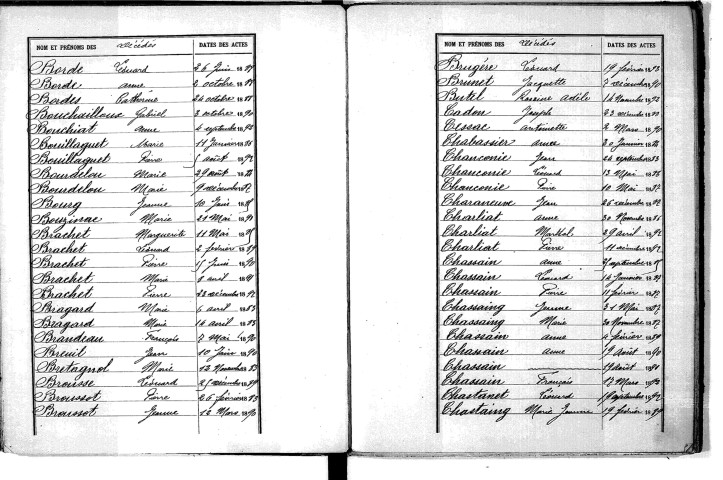 NOM ET PRÉNOMS DES Décédés DATES DES ACTES
Borde Léonard 26 Juin 18
Borde anne 2 octobre 18
Bordes Catherine 24 octobre 18
Bouchailloux Gabriel 3 octobre 1890
Bouchiat anne 4 septembre 1892
Bouillaguet Marie 11 Janvier 18
Bouillaguet Pierre 1 août 1892
Bourdelou Marie 29 août 1888
Bourdelou Marie 9 décembre 1892
Bourg Jeanne 10 Juin 18
Bouzissac Marie 21 Mai 1890
Brachet Marguerite 11 Mai 18
Brachet Léonard 2 février 1889
Brachet Pierre Juin 1890
Brachet Marie 8 avril 18
Brachet Pierre 28 décembre 1892
Bragard Marie 6 avril 1883
Bragard Marie 14 avril 1885
Brandeau François 7 Mai 1890
Breuil Jean 10 Juin 1890
Bretagnol Marie 12 Novembre 1883
Brousse Léonard décembre 1889
Broussot Pierre 26 février 1883
Broussot Jeanne 12 Mars 1890
NOM ET PRÉNOMS DES Décédés DATES DES ACTES
Brugère Léonard 19 février 1883
Brunet Jacquette 7 décembre 1890
Butel Rosine adèle 14 Novembre 1892
Cadon Joseph 23 décembre 18
Cessac antoinette 2 Mars 1890
Chabassier anne 20 Janvier 1888
Chanconie Jean 24 septembre 1883
Chanconie Léonard 13 Mai 1888
Chanconie Pierre 10 Mai 1892
Charaneux Jean 26 décembre 18
Charliat anne 30 Novembre 1886
Charliat Martial 29 avril 1892
Charliat Pierre 11 décembre 1892
Chassain anne septembre 18
Chassain Léonard 14 Janvier 1889
Chassain Pierre 11 février 1892
Chassaing Jeanne 31 Mai 1887
Chassaing Marie 30 Novembre 1887
Chassain anne 4 février 1889
Chassain anne 19 Août 1890
Chassain août 18
Chassain François 17 Mars 1892
Chastanet Léonard septembre 1892
Chastaing Marie Jeanne 19 février 1889